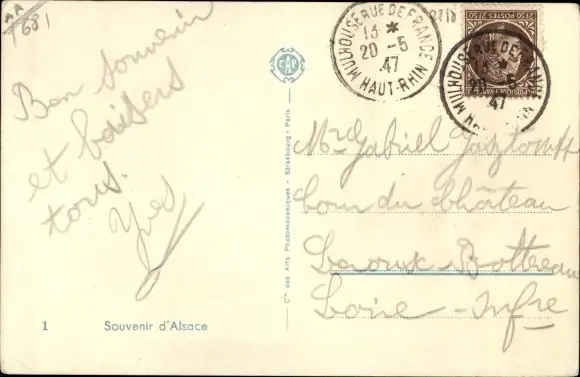 AA
1681
Bon souvenir
et baisers
tous.
Yves
1 Souvenir d'Alsace
Cie des Arts Photomécaniques - Strasbourg - Paris
CAP
MULHOUSE RUE DE FRANCE
13 *
20-5
47
HAUT-RHIN
2F50 POSTES 2F50
MULHOUSE RUE DE FRANCE
47
HAUT-RHIN
Mr Gabriel
Cour du Château
Bottereau
Loire-Infre